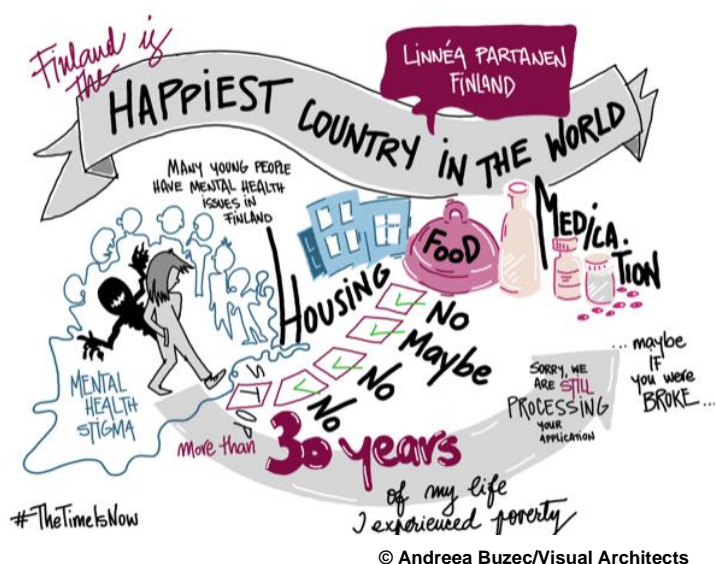 Finland is
the
HAPPIEST COUNTRY IN THE WORLD
LINNÉA PARTANEN
FINLAND
MANY YOUNG PEOPLE
HAVE MENTAL HEALTH
ISSUES IN
FINLAND
HOUSING
FOOD
MEDICA.
TION
NO
Maybe
No
No
STOP
MENTAL
HEALTH
STIGMA
SORRY, WE
ARE STILL
PROCESSING
YOUR
APPLICATION
... maybe
IF
you were
BROKE ...
more than 30 years
of my life
I experienced poverty
#TheTimeIsNow
© Andreea Buzec/Visual Architects